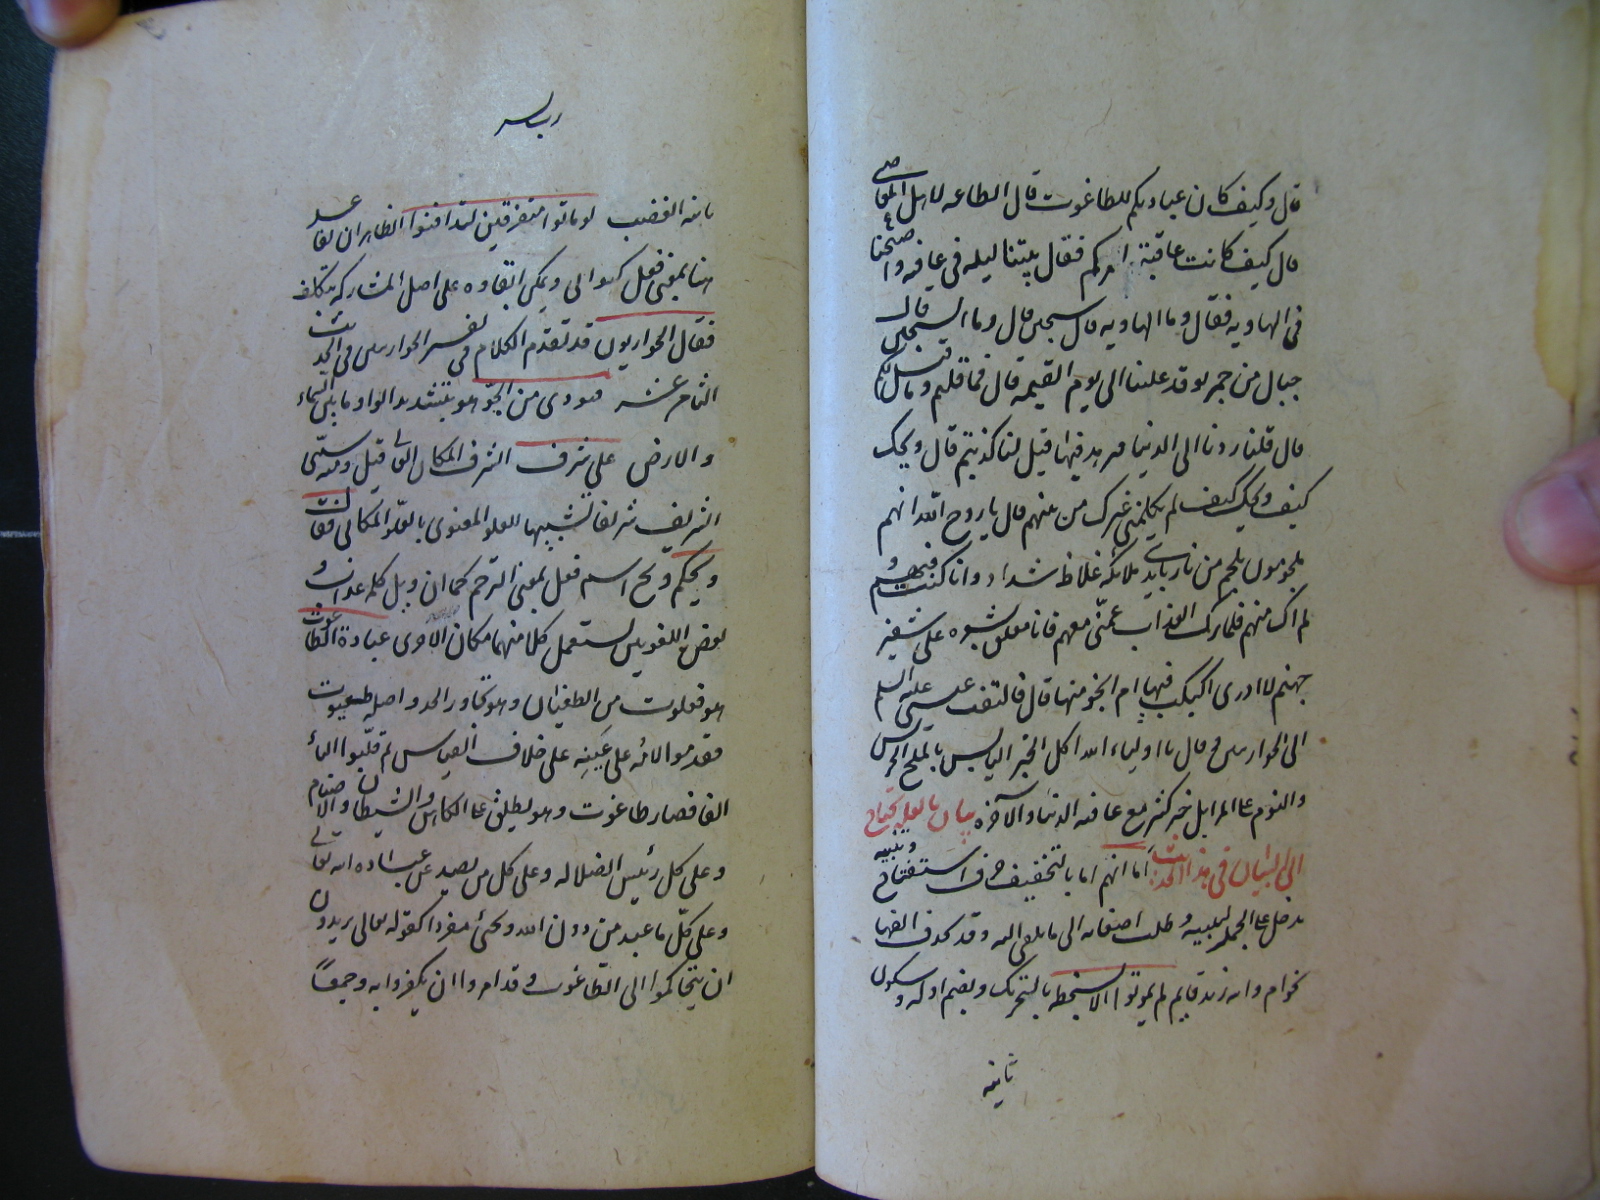 قال وكيف كان عبادتكم للطاغوت قال الطاعة لاهل المعاصي
قال كيف كانت عاقبة امركم فقال بتنا ليلة في عافية واصبحنا
في الهاوية فقال وما الهاوية قال سجين قال وما السجين قال
جبال من جمر توقد علينا الى يوم القيمة قال فما قلتم وما قيل لكم
قال قلنا ردنا الى الدنيا فنزهد فيها قيل لنا كذبتم قال ويحك
كيف ويحك كيف لم يكلمني غيرك من بينهم قال يا روح الله انهم
ملجومون بلجم من نار بايدي ملائكة غلاظ شداد وانا كنت فيهم و
لم اك منهم فلما نزل العذاب عمني معهم فانا معلق بشعرة على شفير
جهنم لا ادري اكبكب فيها ام انجو منها قال فالتفت عيسى عليه السلم
الى الحواريين و قال يا اولياء الله اكل الخبز اليابس بالملح الجريش
والنوم على المزابل خير كثير مع عافية الدنيا والآخرة بيان ما لعله يحتاج
الى البيان في هذا الحديث اما انهم اما بالتخفيف حرف استفتاح وتنبيه
تدخل على الجملة لتنبيه و طلب اصغائه الى ما يلقى اليه وقد تحذف الفها
نحو ام والله زيد قايم لم يموتوا الا بسخطة بالتحريك وبضم اوله وسكون
ثانيه
رساله
ثانيه الغضب لو ماتوا متفرقين لتدافنوا الظاهر ان تفاعل
هنا بمعنى فعل كتوانى ويمكن ابقاؤه على اصل المشاركة بتكلف
فقال الحواريون قد تقدم الكلام في تفسير الحواريين في الحديث
الثامن عشر فنودي من الجو هو بتشديد الواو ما بين السماء
والارض على شرف الشرف المكان العالي قيل ومنه سمي
الشريف شريفا تشبيها للعلو المعنوي بالعلو المكاني فقال
ويحكم ويح اسم فعل بمعنى الترحم كما ان ويل كلمة عذاب و
بعض اللغويين يستعمل كلا منهما مكان الاخرى عبادة الطاغوت
هو فعلوت من الطغيان وهو تجاوز الحد واصله طغيوت
فقدموا لامه على عينه على خلاف القياس ثم قلبوا الياء
الفا فصار طاغوت وهو يطلق على الكاهن والشيطان والاصنام
وعلى كل رئيس الضلاله وعلى كل من يصد عن عبادة الله تعالى
وعلى كل ما عبد من دون الله ويجئ مفردا كقوله تعالى يريدون
ان يتحاكموا الى الطاغوت وقد امروا ان يكفروا به وجمعاً